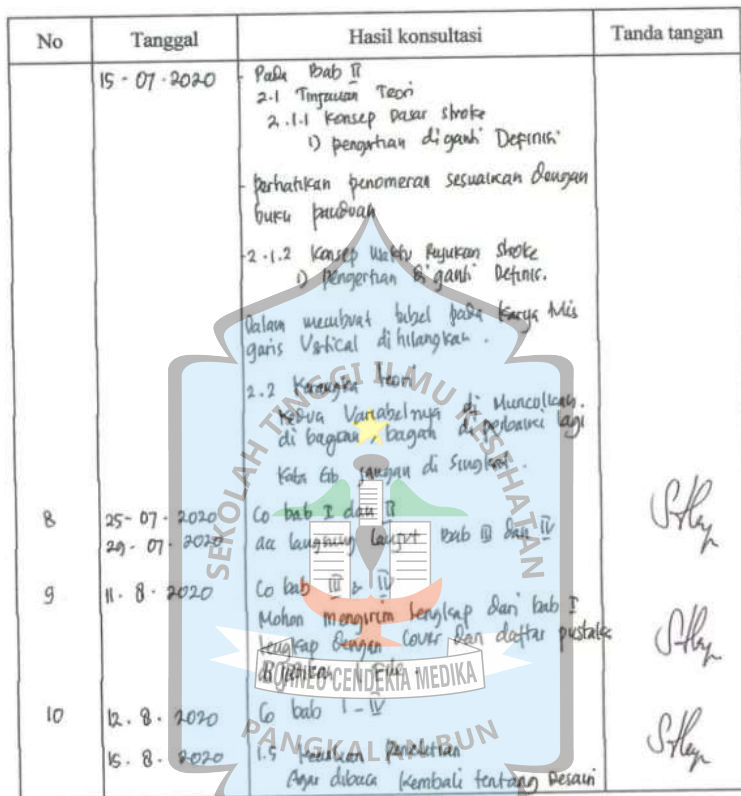 No Tanggal Hasil konsultasi Tanda tangan
15 - 07 - 2020 - Pada Bab II
2.1 Tinjauan Teori
2.1.1 Konsep Dasar stroke
1) pengertian diganti Definisi
- perhatikan penomeran sesuaikan dengan
buku panduan
- 2.1.2 Konsep Waktu Rujukan stroke
1) Pengertian diganti Definisi.
Dalam membuat tabel pada Karya tulis
garis Vertical dihilangkan.
2.2 Kerangka teori
Kedua Variabelnya di Munculkan.
di bagian bagan diperbaiki lagi
Kata Gb jangan di Singkat.
8 25 - 07 - 2020 Co bab I dan II
29 - 07 - 2020 acc langsung lanjut Bab III dan IV
9 11 . 8 . 2020 Co bab III & IV
Mohon mengirim lengkap dari bab I
lengkap dengan Cover dan daftar pustaka
dijadikan 1 file.
10 12 . 8 . 2020 Co bab I - IV
15 . 8 . 2020 1.5 Keaslian Penelitian
Agar dibaca kembali tentang Desain
SEKOLAH TINGGI ILMU KESEHATAN
BORNEO CENDEKIA MEDIKA
PANGKALAN BUN